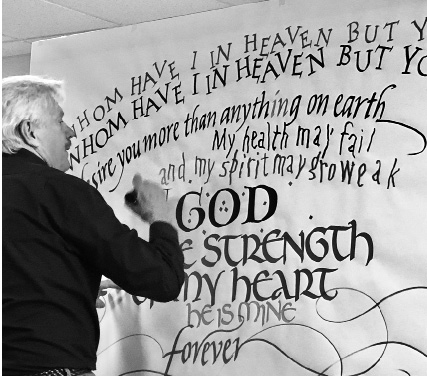 WHOM HAVE I IN HEAVEN BUT
WHOM HAVE I IN HEAVEN BUT
you more than anything on earth
My health may fail
and my spirit may grow eak
GOD
STRENGTH
MY HEART
HE IS MINE
forever